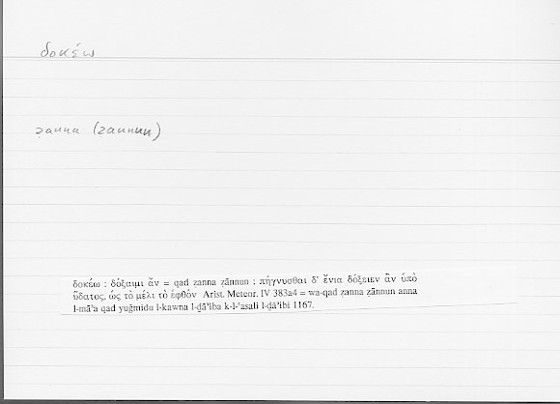 δοκέω
ẓanna (ẓannun)
δοκέω : δόξαιμι ἄν = qad ẓanna ẓānnun ; πήγνυσθαι δ' ἔνια δόξειεν ἄν ὑπὸ
ὕδατος, ὡς τὸ μέλι τὸ ἑφθόν Arist. Meteor. IV 383a4 = wa-qad ẓanna ẓānnun anna
l-mā'a qad yuǧmidu l-kawna l-ḏā'iba k-l-'asali l-ḏā'ibi 1167.